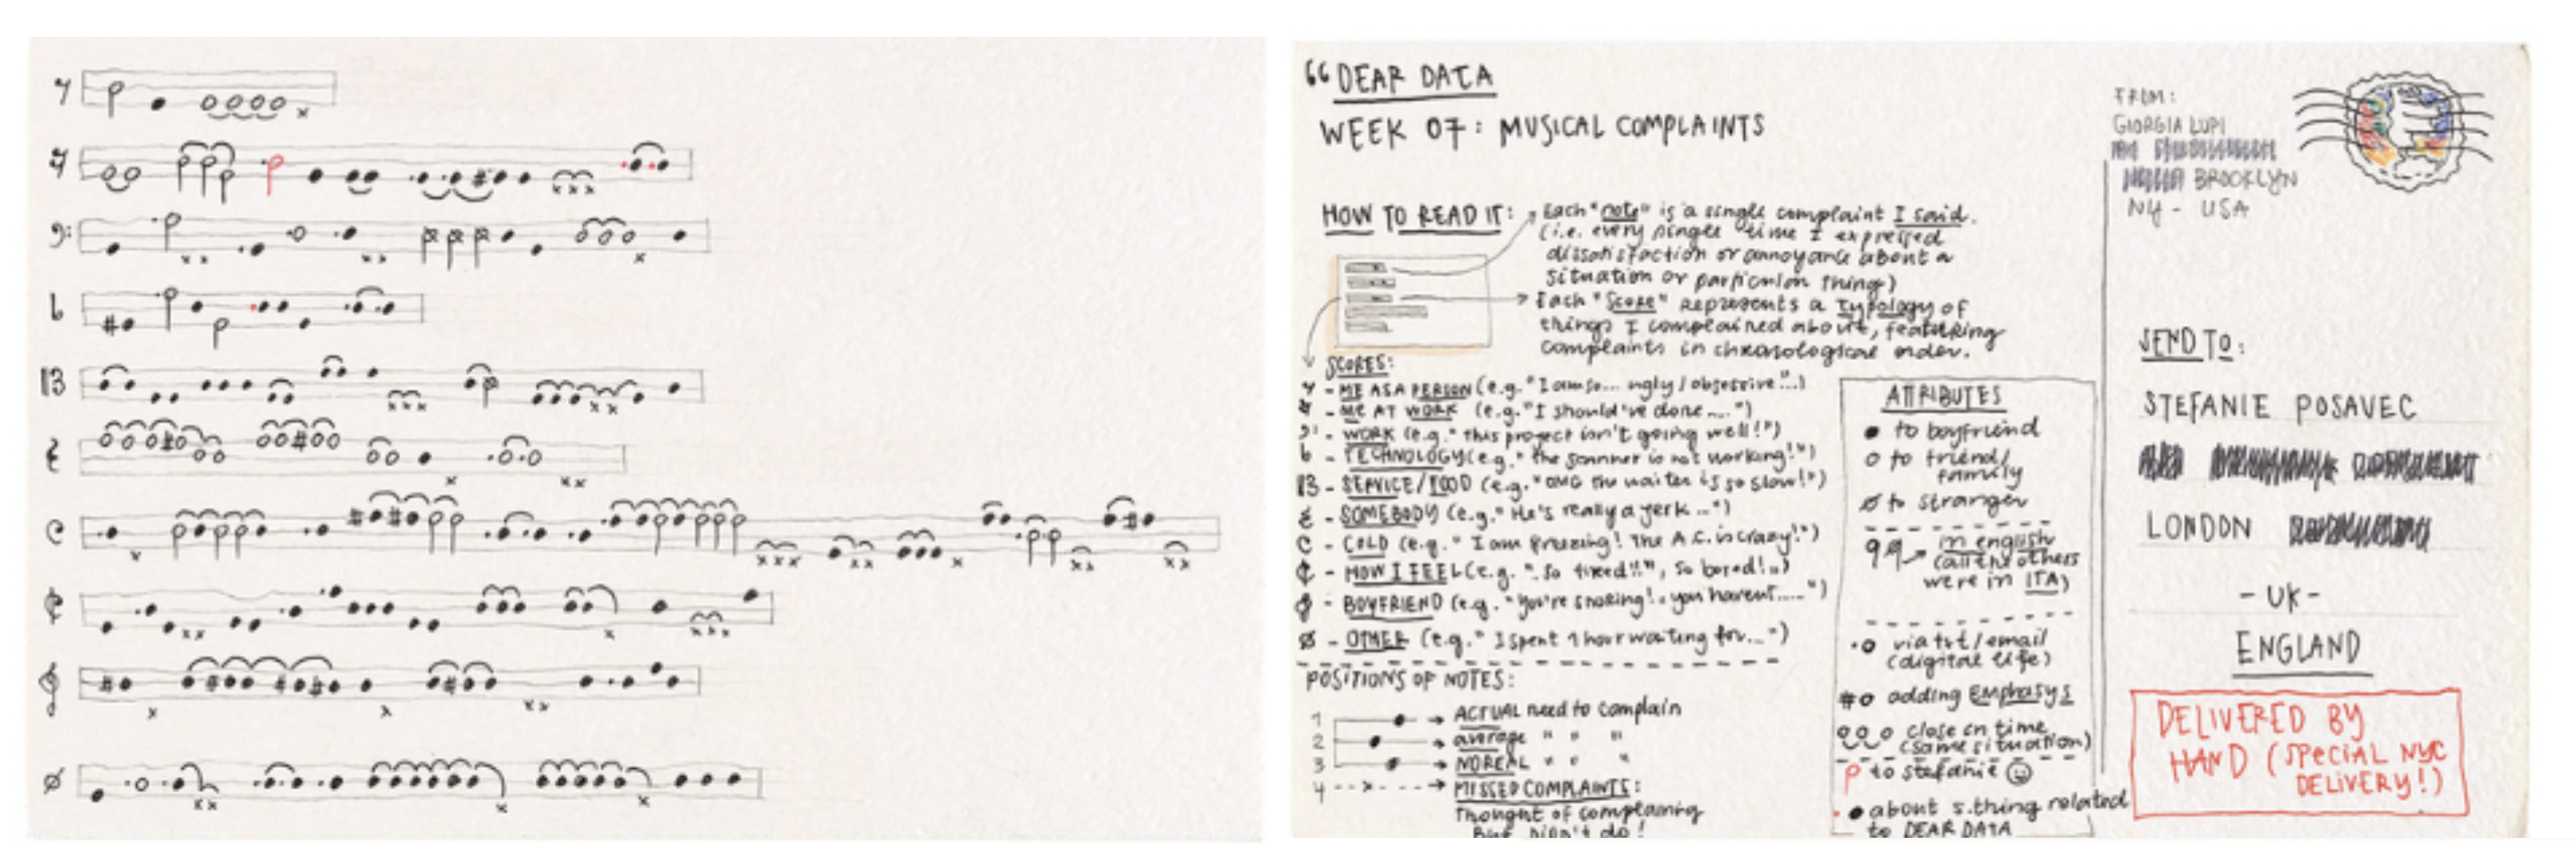 “DEAR DATA
WEEK 07: MUSICAL COMPLAINTS
HOW TO READ IT:
Each "note" is a single complaint I said.
(i.e. every single time I expressed
dissatisfaction or annoyance about a
situation or particular thing)
Each "Score" represents a typology of
things I complained about, featuring
complaints in chronological order.
SCORES:
- ME AS A PERSON (e.g. "I am so... ugly / obsessive"...)
- ME AT WORK (e.g. "I should've done....")
- WORK (e.g. "this project isn't going well!")
- TECHNOLOGY (e.g. "the scanner is not working!")
- SERVICE/FOOD (e.g. "OMG the waiter is so slow!")
- SOMEBODY (e.g. "He's really a jerk...")
- COLD (e.g. "I am freezing! The A.C. is crazy!")
- HOW I FEEL (e.g. "So tired!!", so bored!..)
- BOYFRIEND (e.g. "you're snoring!. you haven't.....")
- OTHER (e.g. "I spent 1 hour waiting for...")
POSITIONS OF NOTES:
1 → ACTUAL need to complain
2 → average " " "
3 → NOREAL " " "
4 → MISSED COMPLAINTS:
Thought of complaining
But didn't do!
ATTRIBUTES
to boyfriend
to friend/
family
to stranger
in english
(all the others
were in ITA)
via txt/email
(digital life)
adding Emphasys
close in time
(same situation)
to stefanie
about s.thing related
to DEAR DATA
FROM:
GIORGIA LUPI
BROOKLYN
NY - USA
SEND TO:
STEFANIE POSAVEC
LONDON
- UK -
ENGLAND
DELIVERED BY
HAND (SPECIAL NYC
DELIVERY!)